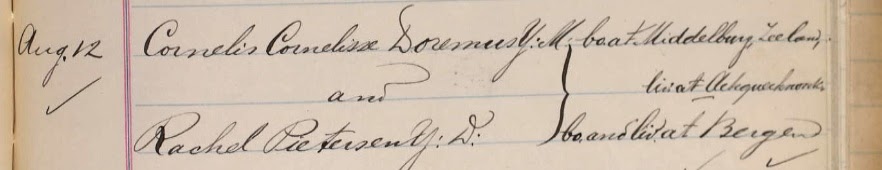 Aug. 12 Cornelis Cornelisse Doremus Y: M: bo. at Middelburg, Zeeland,
liv: at Achquechnonk.
and
Rachel Pietersen Y: D: bo. and liv. at Bergen